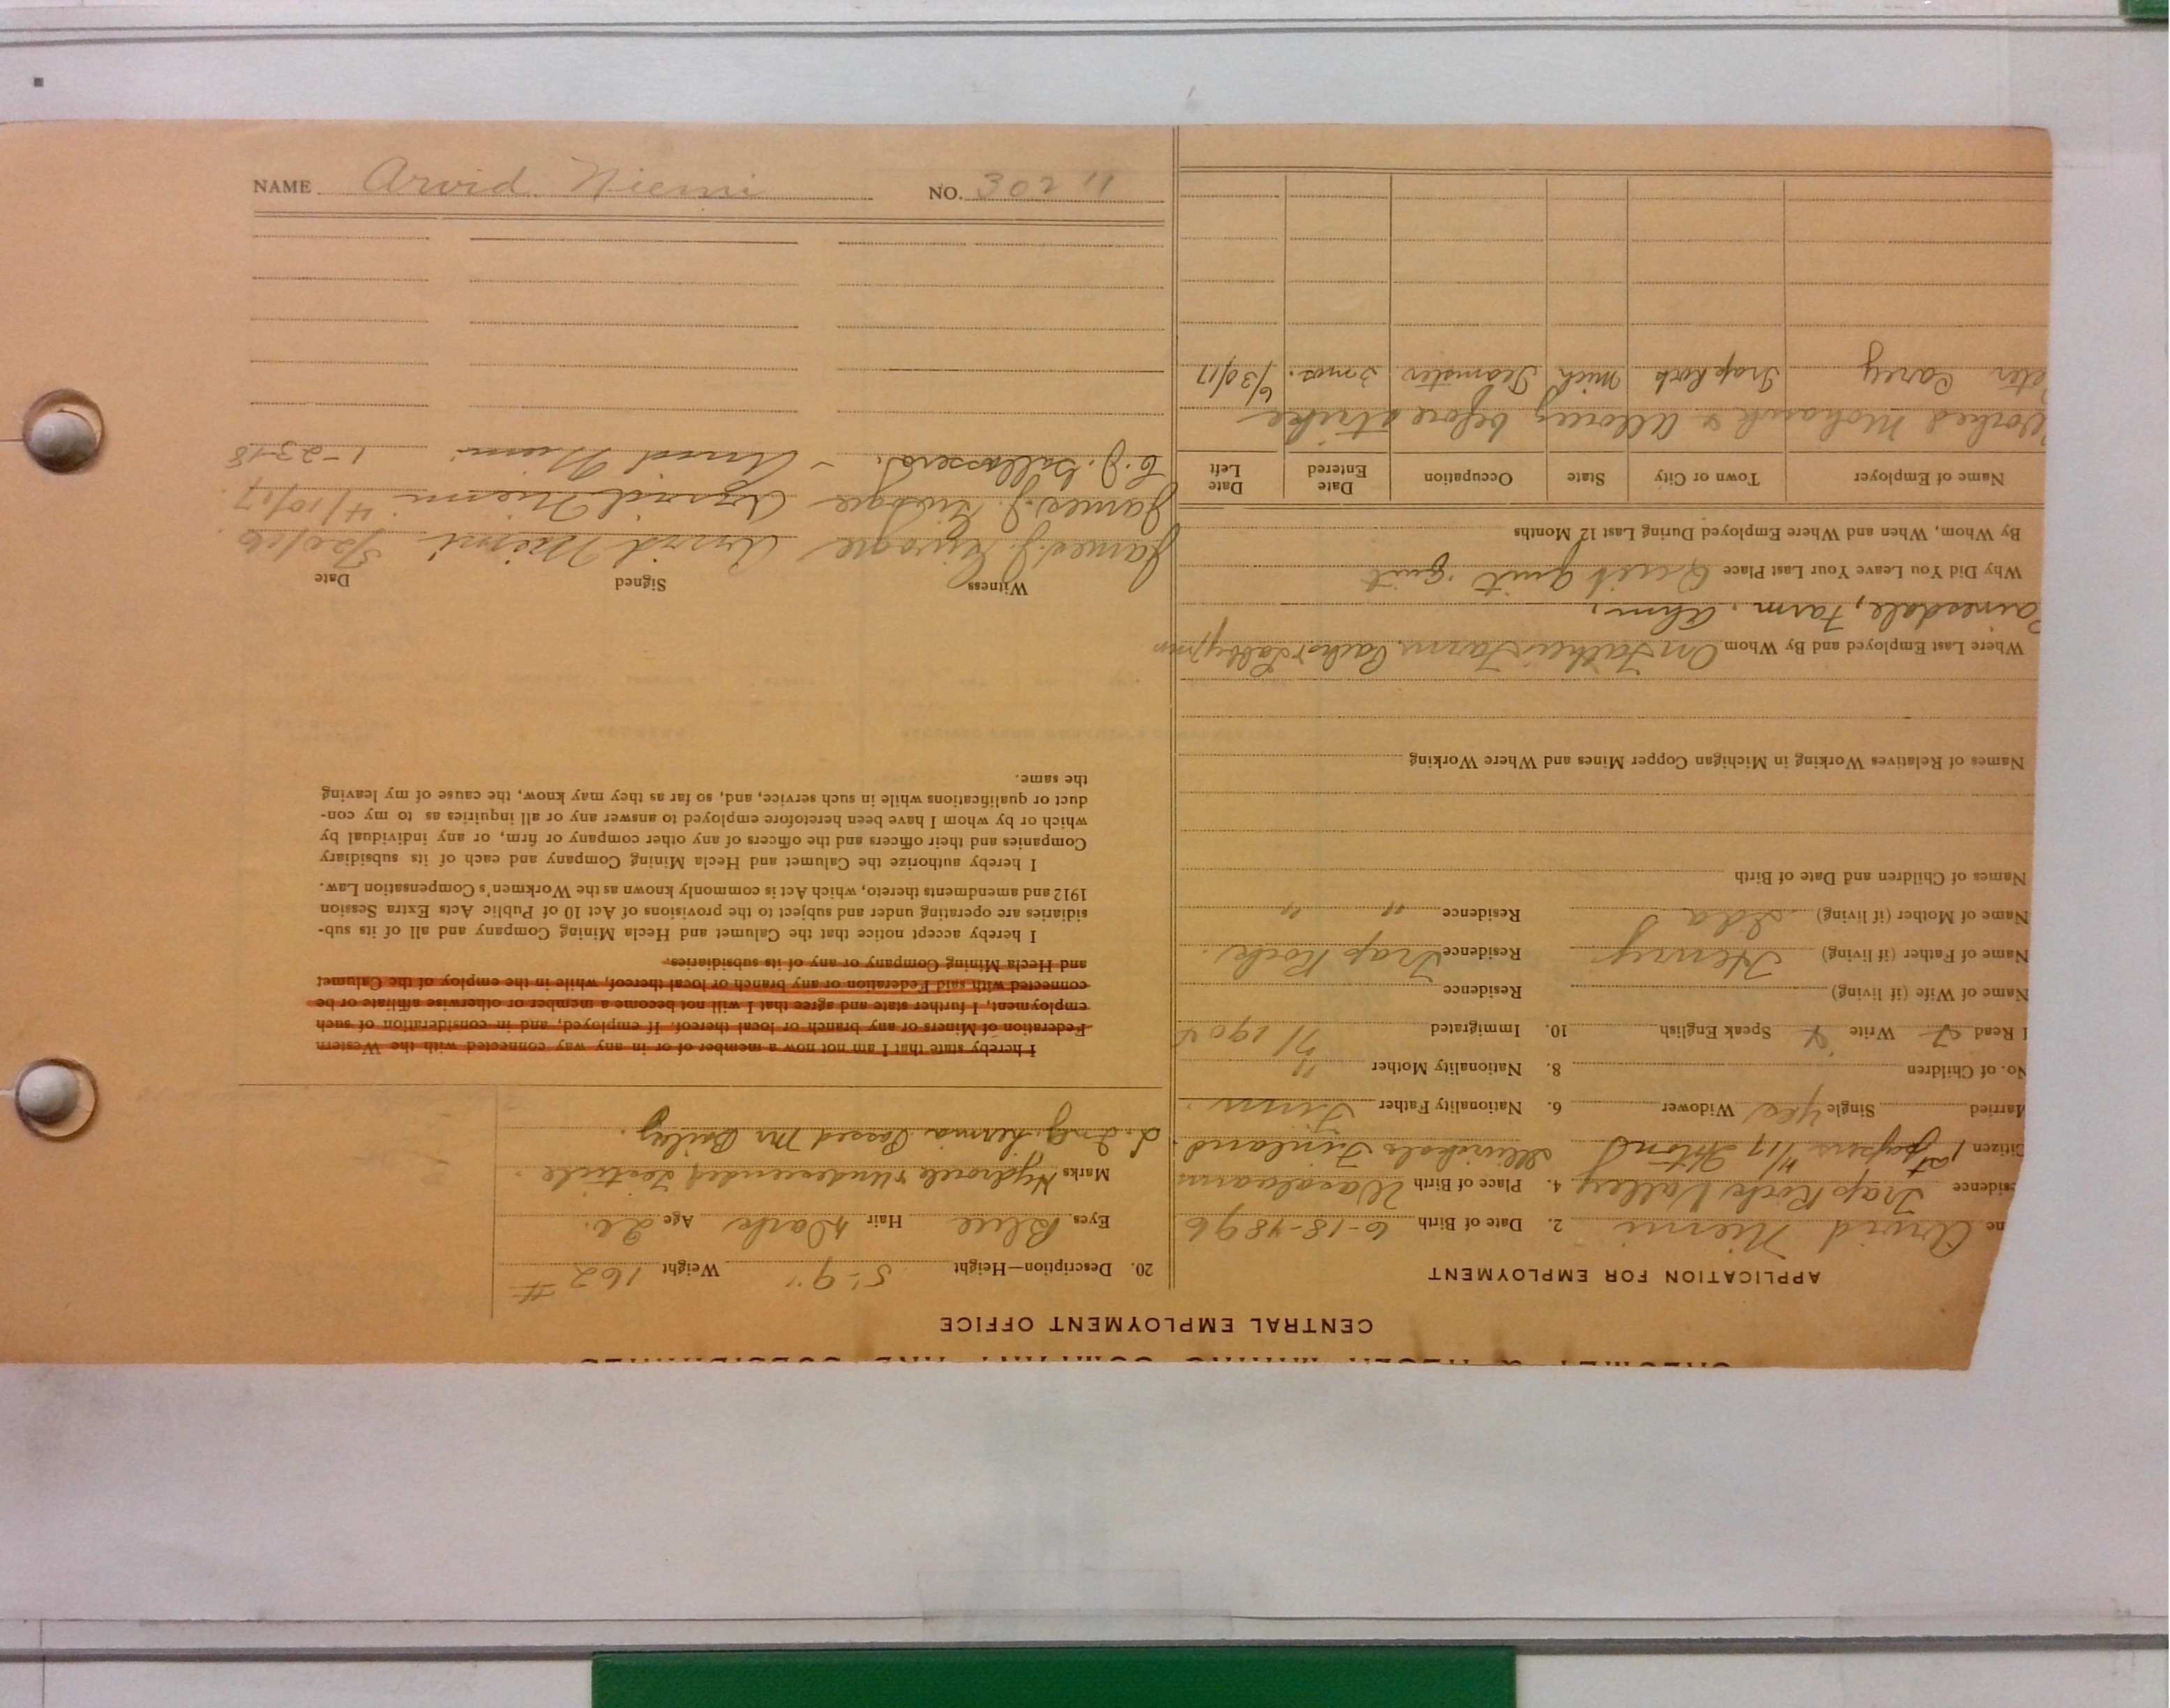 CENTRAL EMPLOYMENT OFFICE
APPLICATION FOR EMPLOYMENT
Arvid Niemi 2. Date of Birth 6-18-1896
Trap Rock Valley 4. Place of Birth
Finland
Married Single Yes Widower 6. Nationality Father Finn
No. of Children 8. Nationality Mother "
Read Write Speak English 10. Immigrated
Name of Wife (if living) Residence
Name of Father (if living) Henry Residence Trap Rock
Name of Mother (if living) Ida Residence " "
Names of Children and Date of Birth
Names of Relatives Working in Michigan Copper Mines and Where Working
Where Last Employed and By Whom On Father Farm
Farm,
Why Did You Leave Your Last Place quit quit
By Whom, When and Where Employed During Last 12 Months
Name of Employer Town or City State Occupation Date Entered Date Left
Worked Mohawk & Allouez before strike
Carey Trap Rock Mich Teamster 3 mos. 6/30/17
20. Description—Height 5'-9" Weight 162 #
Eyes Blue Hair Dark Age 20.
Marks Hydrocele & Undescended Testicle
Passed Mr Bailey.
I hereby state that I am not now a member of or in any way connected with the Western
Federation of Miners or any branch or local thereof. If employed, and in consideration of such
employment, I further state and agree that I will not become a member or otherwise affiliate or be
connected with said Federation or any branch or local thereof, while in the employ of the Calumet
and Hecla Mining Company or any of its subsidiaries.
I hereby accept notice that the Calumet and Hecla Mining Company and all of its sub-
sidiaries are operating under and subject to the provisions of Act 10 of Public Acts Extra Session
1912 and amendments thereto, which Act is commonly known as the Workmen's Compensation Law.
I hereby authorize the Calumet and Hecla Mining Company and each of its subsidiary
Companies and their officers and the officers of any other company or firm, or any individual by
which or by whom I have been heretofore employed to answer any or all inquiries as to my con-
duct or qualifications while in such service, and, so far as they may know, the cause of my leaving
the same.
Witness Signed Date
James J. Arvid Niemi
James J. Arvid Niemi 4/10/17
Arvid Niemi 1-23-18
NAME Arvid Niemi NO. 30211